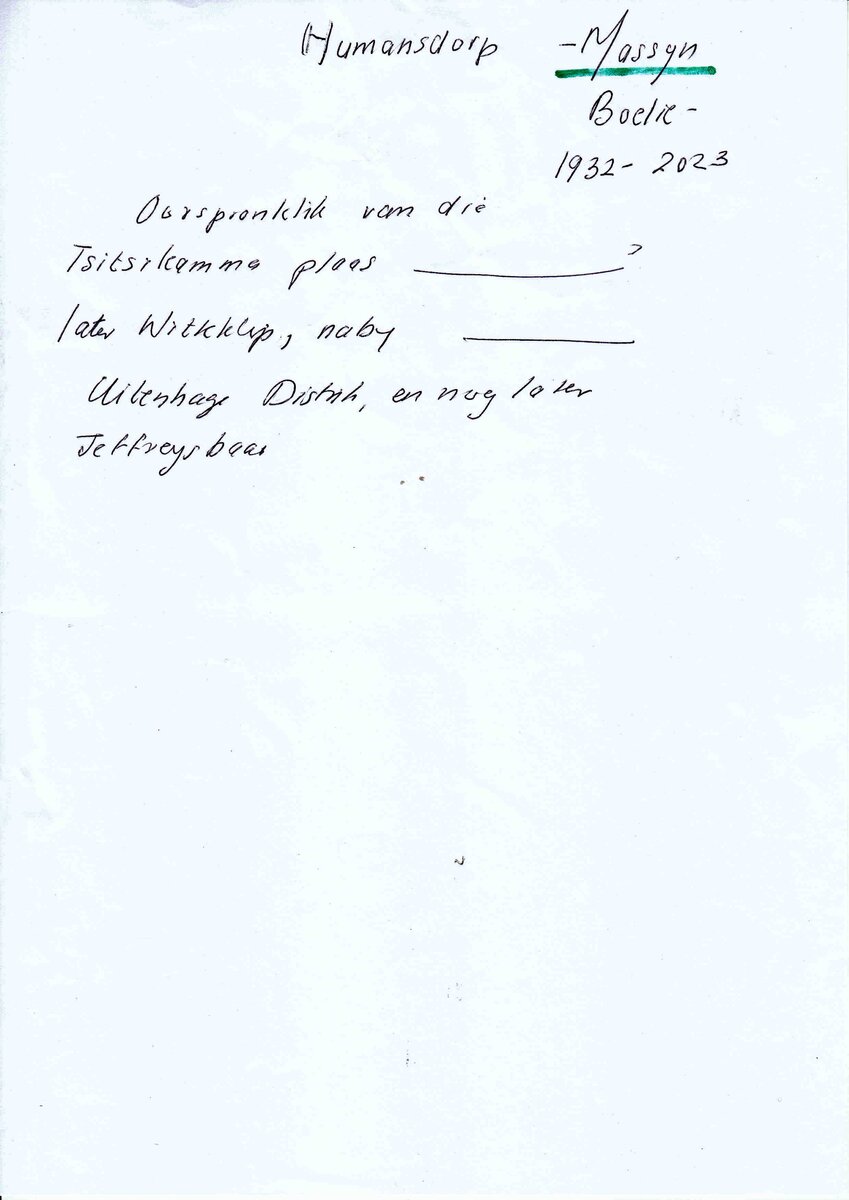 Humansdorp - Massyn
Boelie -
1932 - 2023
Oorspronklik van die
Tsitsikamma plaas ________?
later Witkklip, naby ________
Uitenhage Distrik, en nog later
Jeffreysbaai